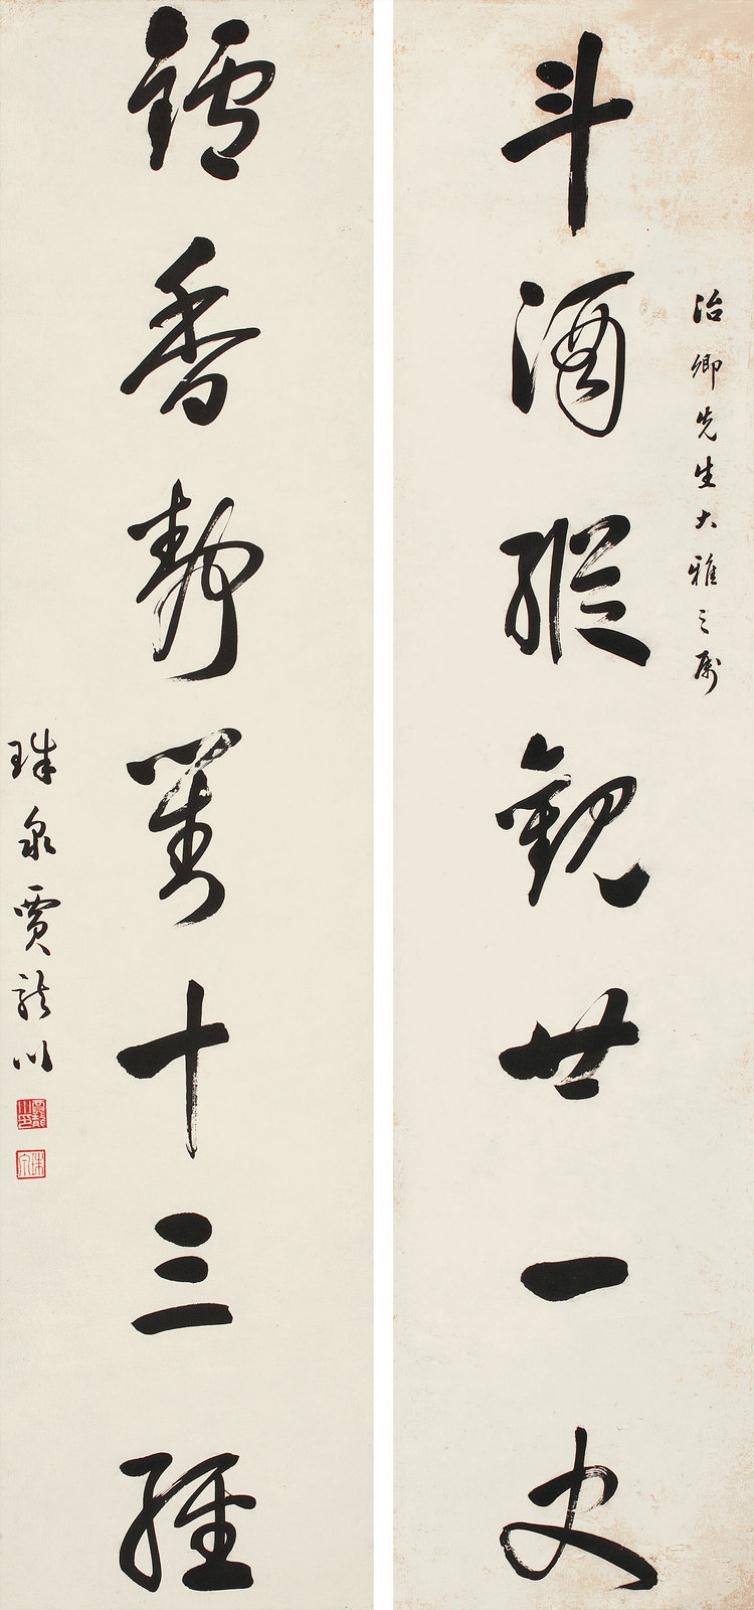 治卿先生大雅之属
斗酒縱觀廿一史
鑪香靜對十三經
珠泉賈龍川